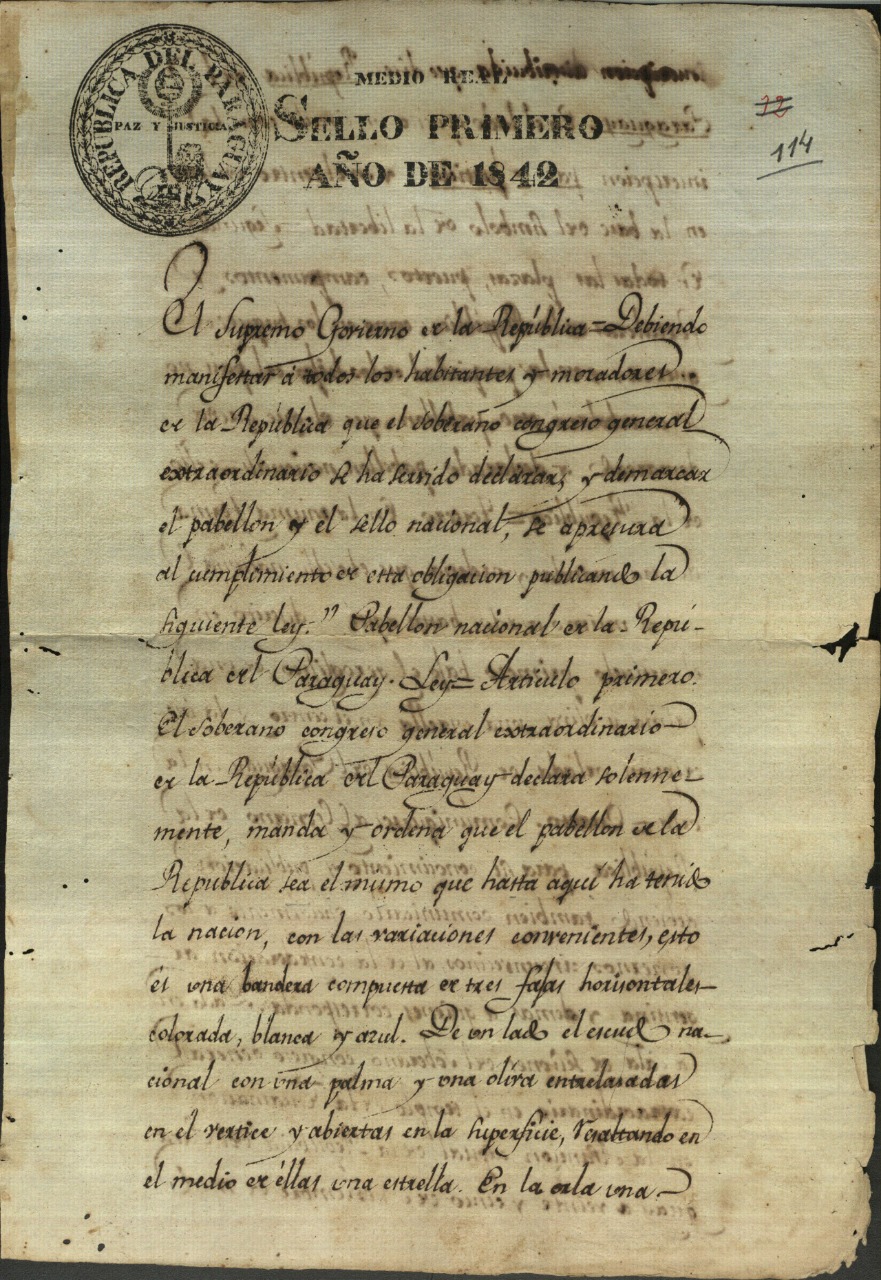 REPUBLICA DEL PARAGUAY
PAZ Y JUSTICIA
MEDIO REAL
SELLO PRIMERO
AÑO DE 1842
12
114
El Supremo Govierno de la República=Debiendo
manifestar á todos los habitantes y moradores
de la República que el soberano congreso general
extraordinario se ha servido declarar, y demarcar
el pabellon y el sello nacional, se apresura
al cumplimiento de esta obligacion publicando la
siguiente ley." Pabellon nacional de la Repú-
blica del Paraguay. Ley= Articulo primero.
El soberano congreso general extraordinario
de la República del Paraguay declara solenne-
mente, manda y ordena que el pabellon de la
República sea el mismo que hasta aquí ha tenido
la nacion, con las variaciones convenientes, esto
és una bandera compuesta de tres fajas horisontales
colorada, blanca y azul. De un lado el escudo na-
cional con una palma y una oliva entrelasadas
en el vertice y abiertas en la superficie, resaltando en
el medio de éllas una estrella. En la orla una